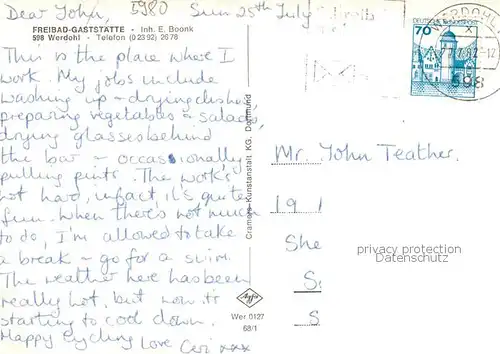 Dear John, 5980 Sun 25th July
FREIBAD-GASTSTÄTTE - Inh. E. Boonk
598 Werdohl - Telefon (0 23 92) 26 78
This is the place where I
work. My jobs include
washing up - drying dishes,
preparing vegetables + salads,
drying glasses behind
the bar - occasionally
pulling pints. The work's
not hard, infact, it's quite
fun. When there's not much
to do, I'm allowed to take
a break - go for a swim.
The weather here has been
really hot, but now it's
starting to cool down.
Happy Cycling Love Ceri xxx
Cramers Kunstanstalt KG, Dortmund
Agfa
Wer 0127
68/1
DEUTSCHE BUNDESPOST
70
WERDOHL
598
Mr. John Teather.
19
She
S
S
privacy protection
Datenschutz